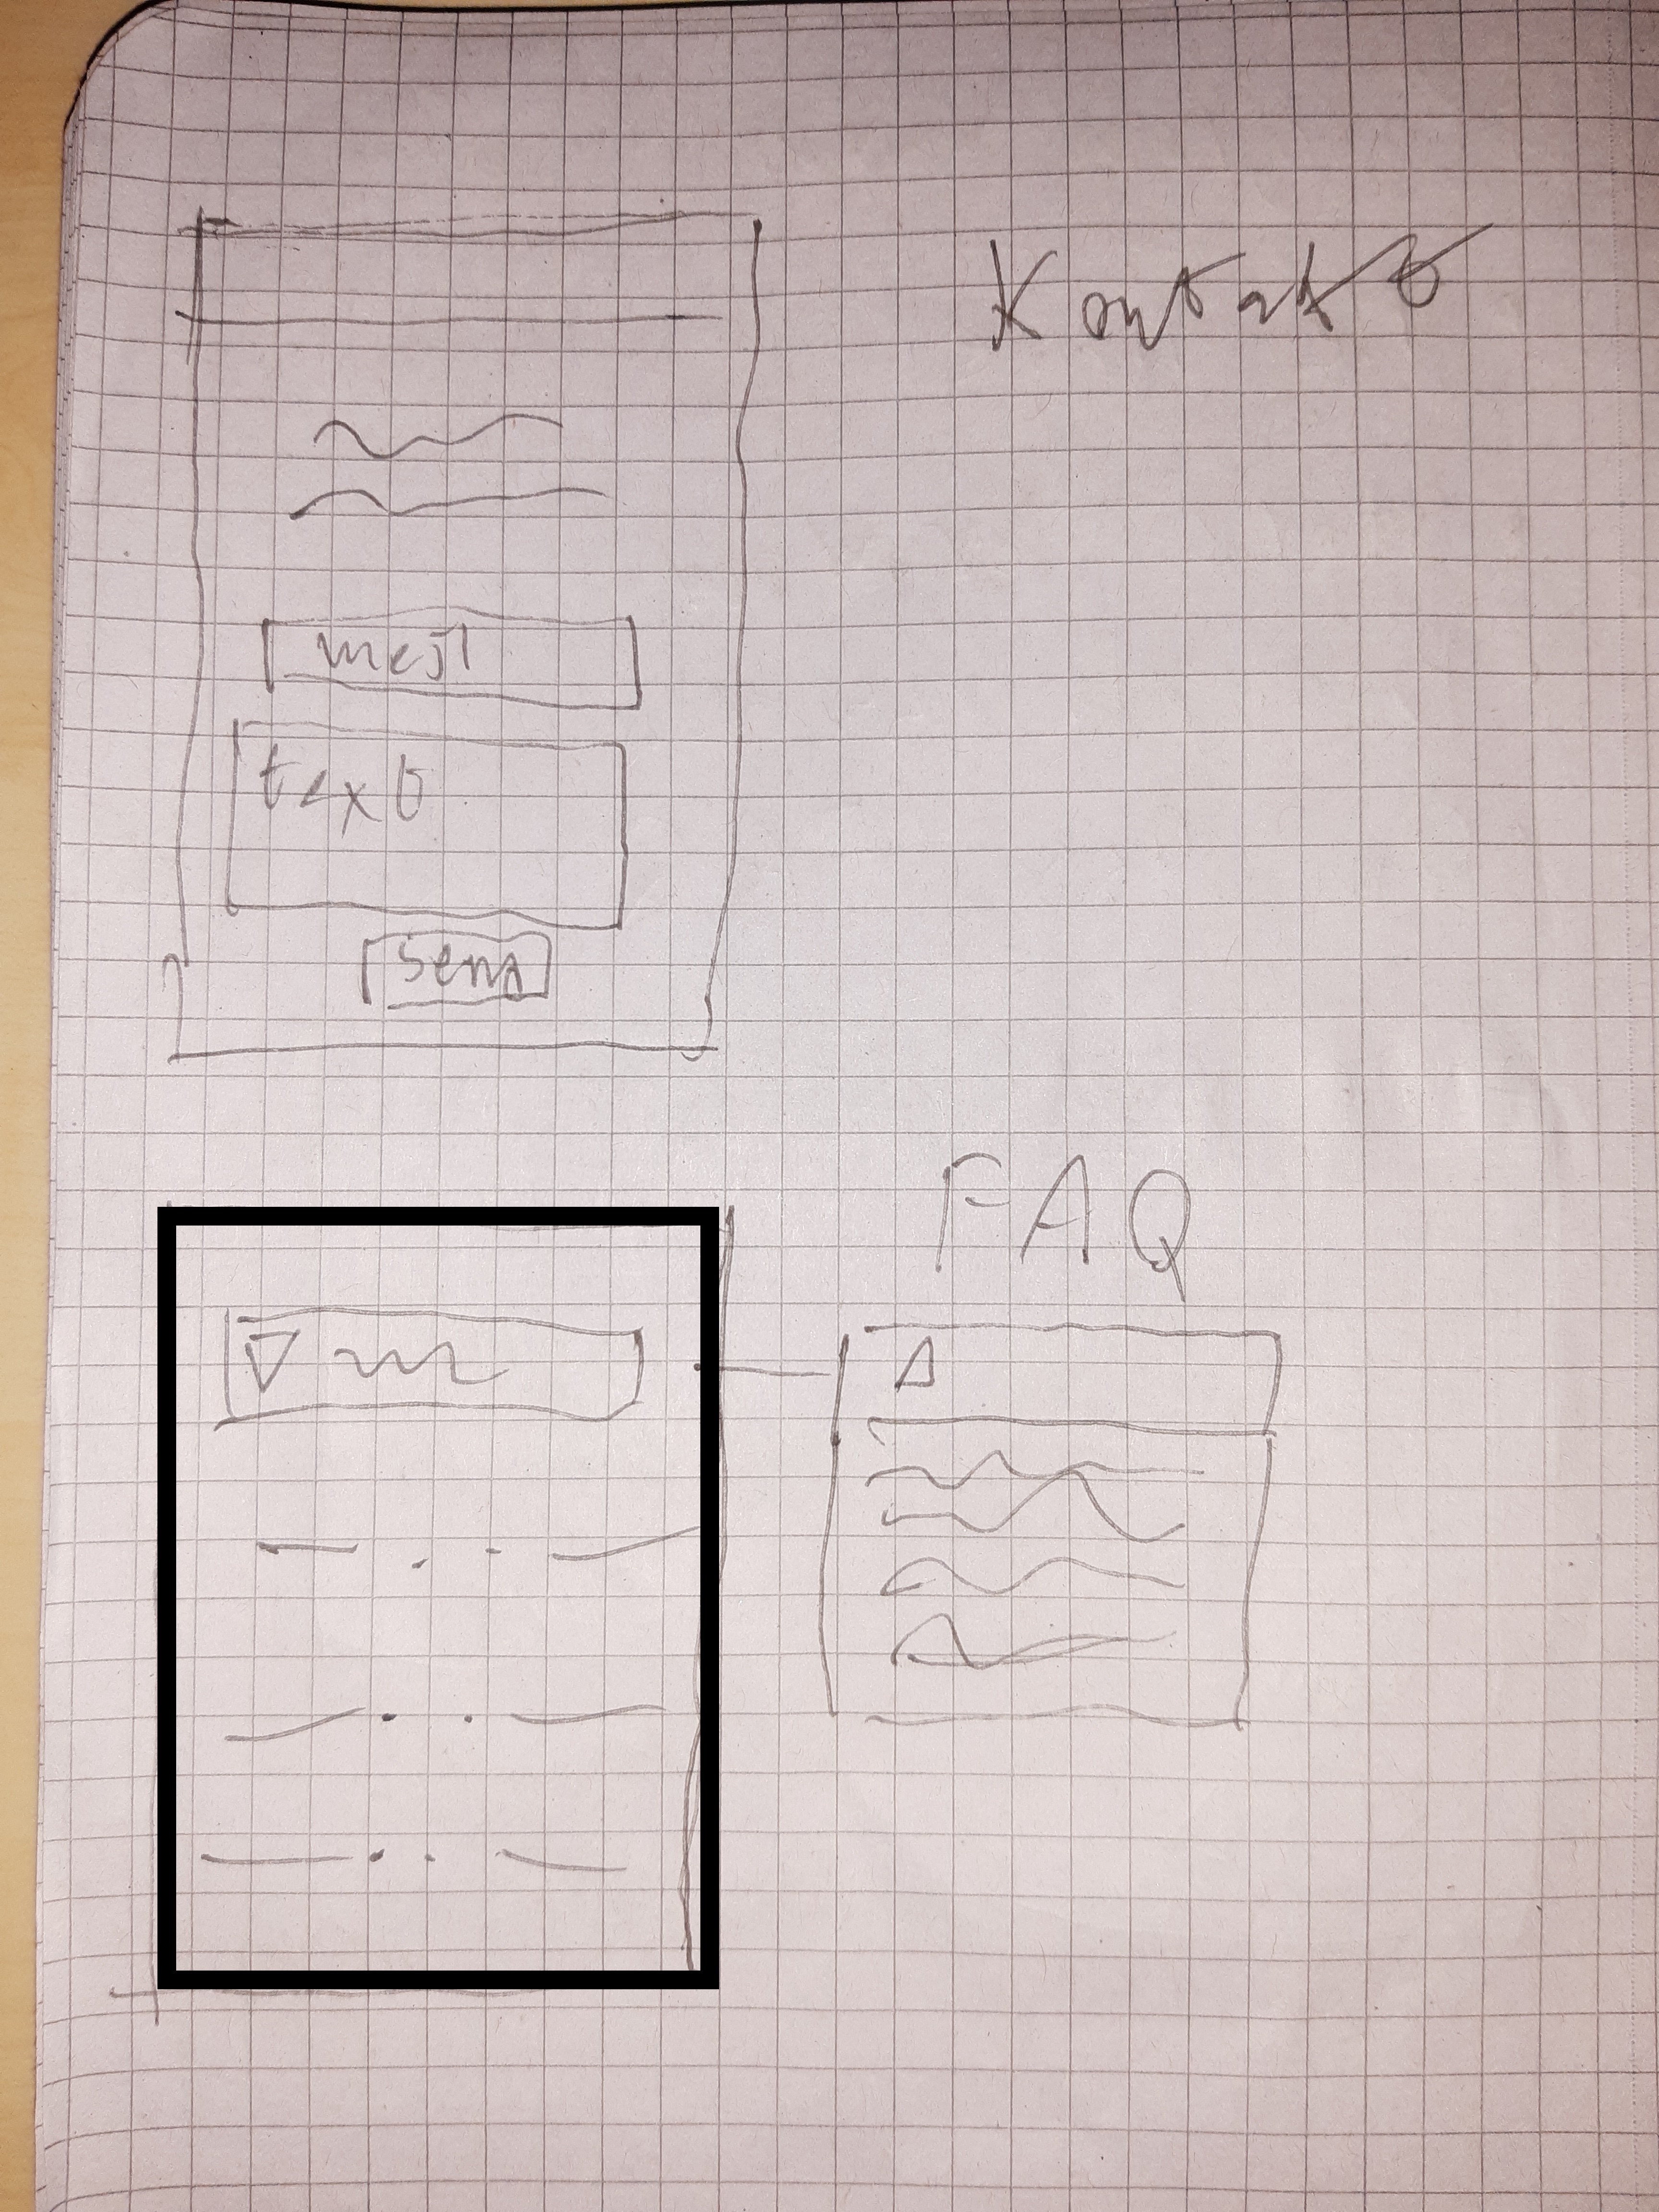 Kontakt
mejl
text
Send
FAQ